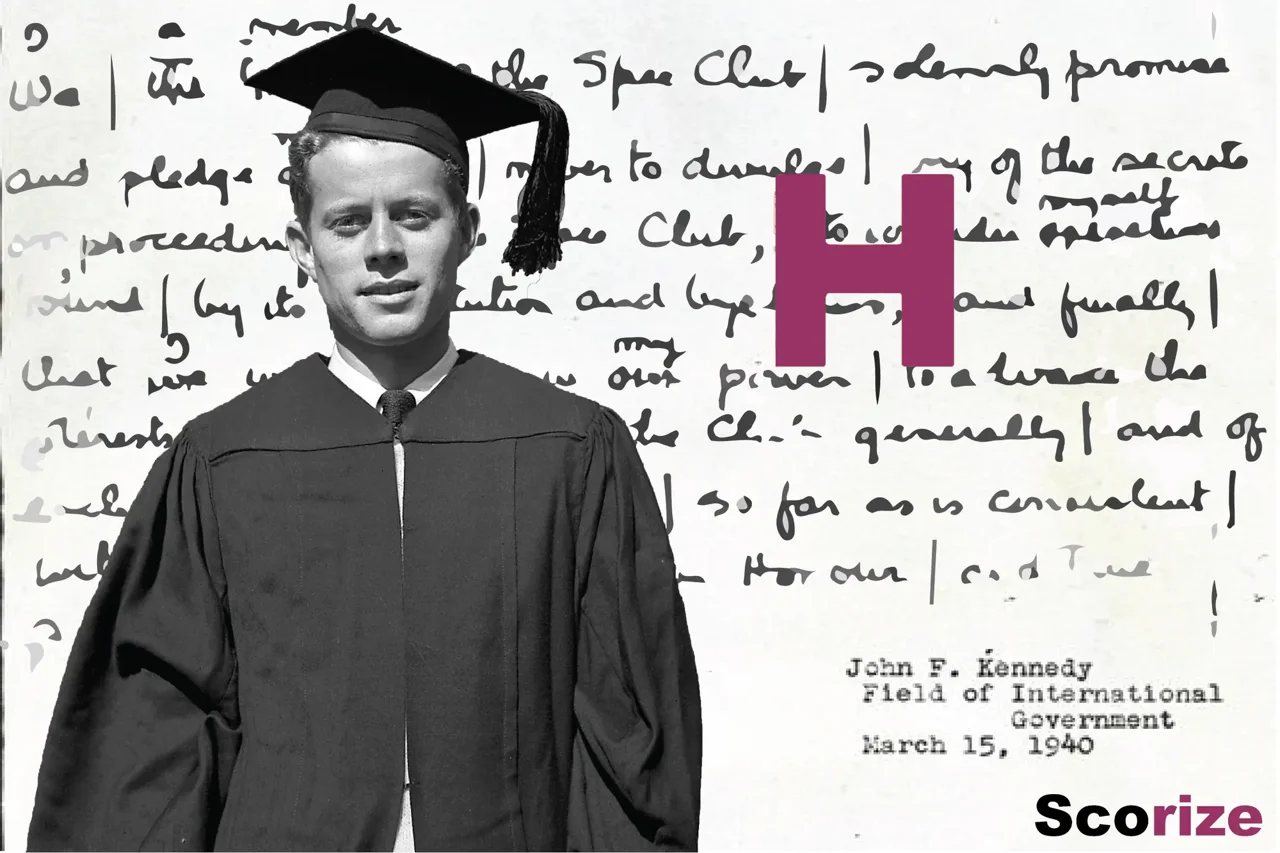 a member
We | the the Spee Club | solemnly promise
and pledge | never to divulge | any of the secrets
myself
or proceedings Club, to consider
bound | by its and bye laws, and finally |
my
that we our power | to advance the
interests the Club generally | and of
so far as is consistent |
Honour | and True
H
John F. Kennedy
Field of International
Government
March 15, 1940
Scorize